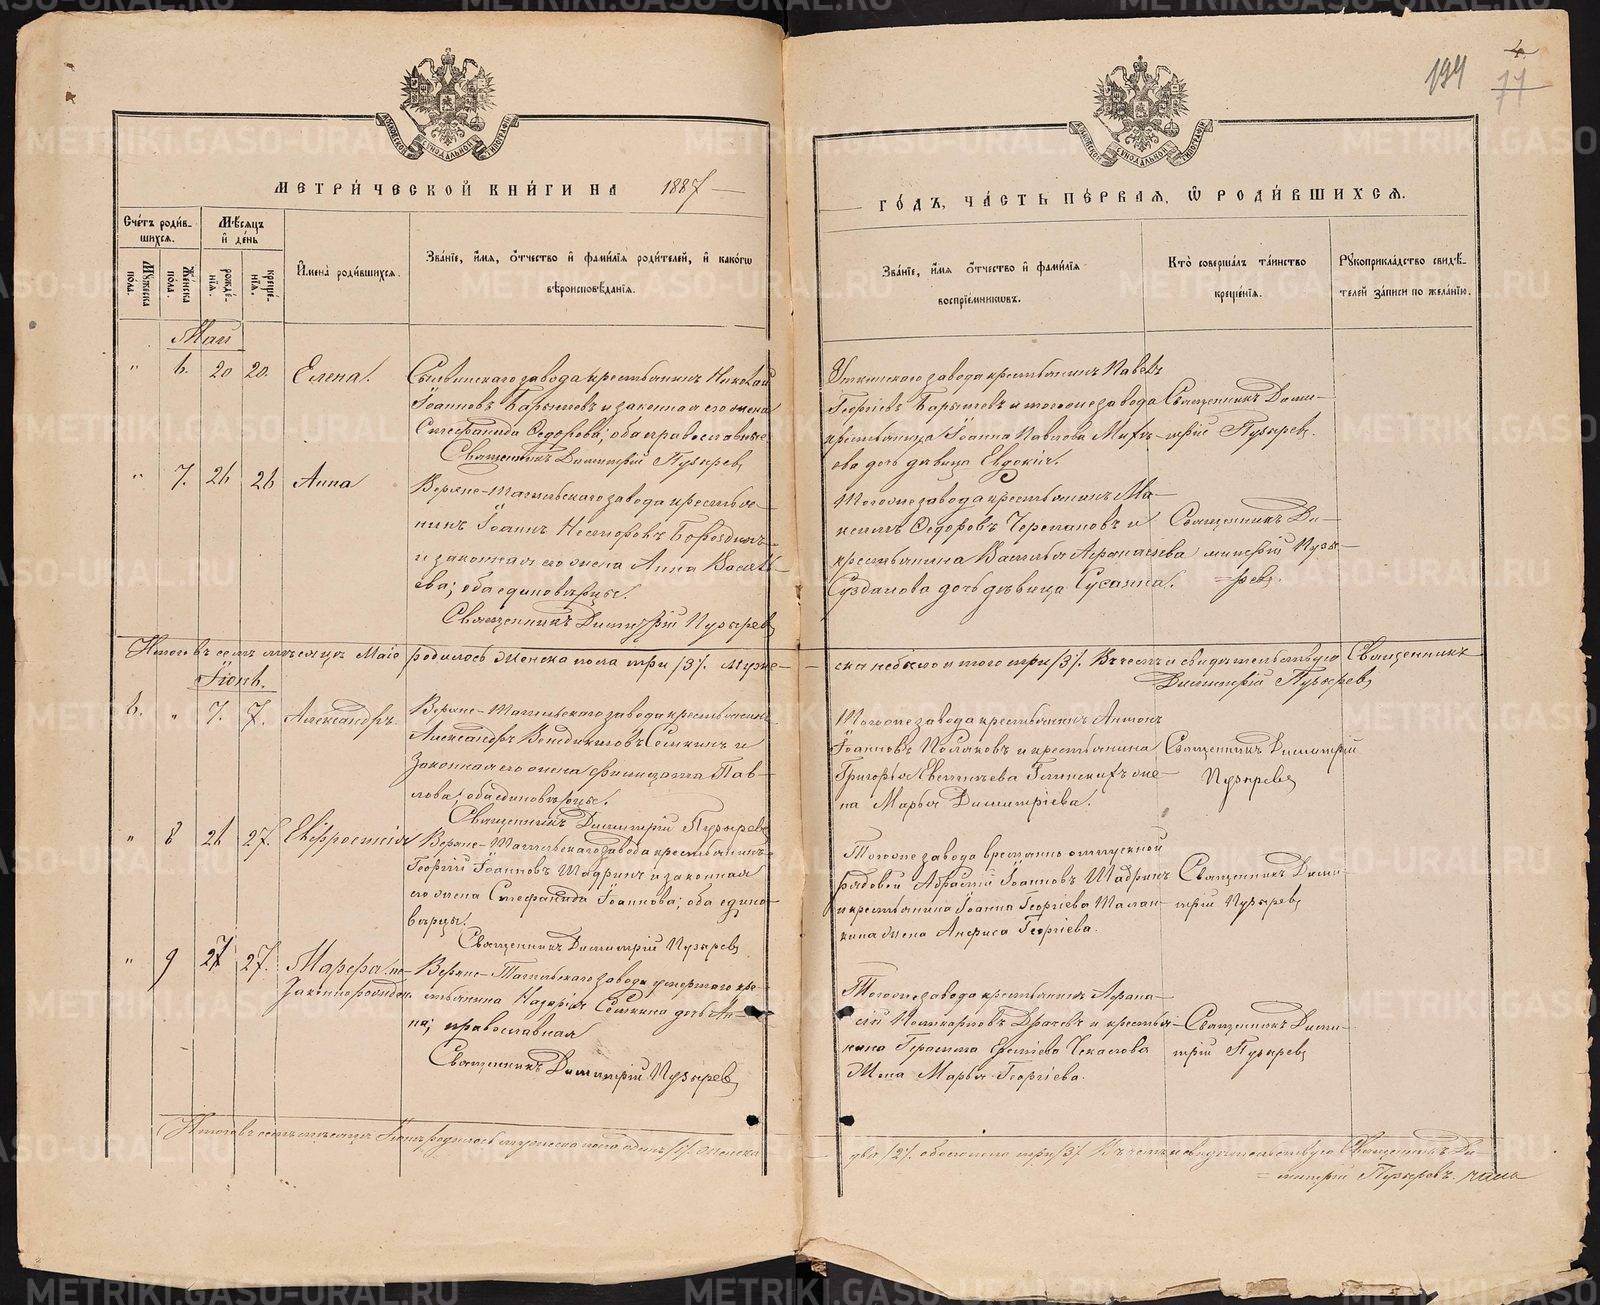 4
194
77
МЕТРИ́ЧЕСКОЙ КНИ́ГИ НА 1887
ГО́ДЪ, ЧА́СТЬ ПЕ́РВАЯ, Ѿ РОДИ́ВШИХСЯ.
Счетъ роди́в-
шихся.
Мѣ́сяцъ
и҆ де́нь
Мꙋжеска пола.
Же́нска пола.
рожде́-
нїя.
креще́-
нїя.
И҆мена̀ роди́вшихся.
Зва́нїе, и҆́мя, ѻ҆́тчество и҆ фами́лїя роди́телей, и҆ како́гѡ
вѣроисповѣ́данїя.
Зва́нїе, и҆́мя ѻ҆́тчество и҆ фами́лїя
воспрїе́мникѡвъ.
Кто̀ соверша́лъ та́инство
креще́нїя.
Рꙋкоприкла́дство свидѣ́-
телей за́писи по жела́нїю.
Май
" 6. 20 20. Елена.
Сылвинскаго завода крестьянинъ Николай
Іоанновъ Барышевъ и законная его жена
Стефанида Ѳедорова; оба православные
Священникъ Димитрій Пузыревъ
Уткинскаго завода крестьянинъ Павелъ
Георгіевъ Барышевъ и тогоже завода
крестьянина Іоанна Павлова
дочь дѣвица Евдокія.
Священникъ Дими-
трій Пузыревъ.
" 7. 26 26 Анна
Верхне-Тагильскаго завода крестья-
нинъ Іоаннъ Несторовъ Бороздинъ
и законная его жена Анна Василь
ева; оба единовѣрцы.
Священникъ Димитрій Пузыревъ
Тогоже завода крестьянинъ Ма-
ксимъ Ѳедоровъ Черепановъ и
крестьянина Василья Аѳанасьева
Суздалова дочь дѣвица Сусанна.
Священникъ Ди-
митрій Пузы-
=ревъ.
Итого въ семъ мѣсяцѣ Маіе родилось женска пола три /3/. Муже-
ска небыло и того три /3/. Въ чемъ и свидѣтельствую Священникъ
Димитрій Пузыревъ
Іюнь.
6. " 7. 7. Александръ.
Верхне-Тагильскаго завода крестьянинъ
Александръ Венедиктовъ Сѣмкинъ и
Законная его жена Фелицата Пав-
лова; оба единовѣрцы.
Священникъ Димитрій Пузыревъ
Тогоже завода крестьянинъ Антонъ
Іоанновъ Поляковъ и крестьянина
Григорья Евтихіева же-
на Марья Димитріева.
Священникъ Димитрій
Пузыревъ
" 8 26 27. Евфросинія
Верхне-Тагильскаго завода крестьянинъ
Георгій Іоанновъ Шадринъ и законная
его жена Стефанида Іоаннова; оба едино-
вѣрцы.
Священникъ Димитрій Пузыревъ
Тогоже завода временно отпускной
рядовой Іоанновъ Шадринъ
и крестьянина Іоанна Георгіева Талан-
кина жена Анфиса Георгіева.
Священникъ Дими-
трій Пузыревъ
" 9 27 27. Марфа не-
законнорожден.
Верхне-Тагильскаго завода умершаго кре-
стьянина Назарія Сѣмкина дочь Ан-
на; православная
Священникъ Димитрій Пузыревъ
Тогоже завода крестьянинъ Аѳана-
сій Поликарповъ Драчевъ и крестья
нина Герасима Чекасова
Жена Марья Георгіева.
Священникъ Дими-
трій Пузыревъ
Итого въ семъ мѣсяцѣ Іюнѣ родилось мужеска пола одинъ /1/. женска
два /2/. обоего пола три /3/. Въ чемъ и свидѣтельствую Священникъ Ди-
=митрій Пузыревъ.
METRIKI.GASO-URAL.RU